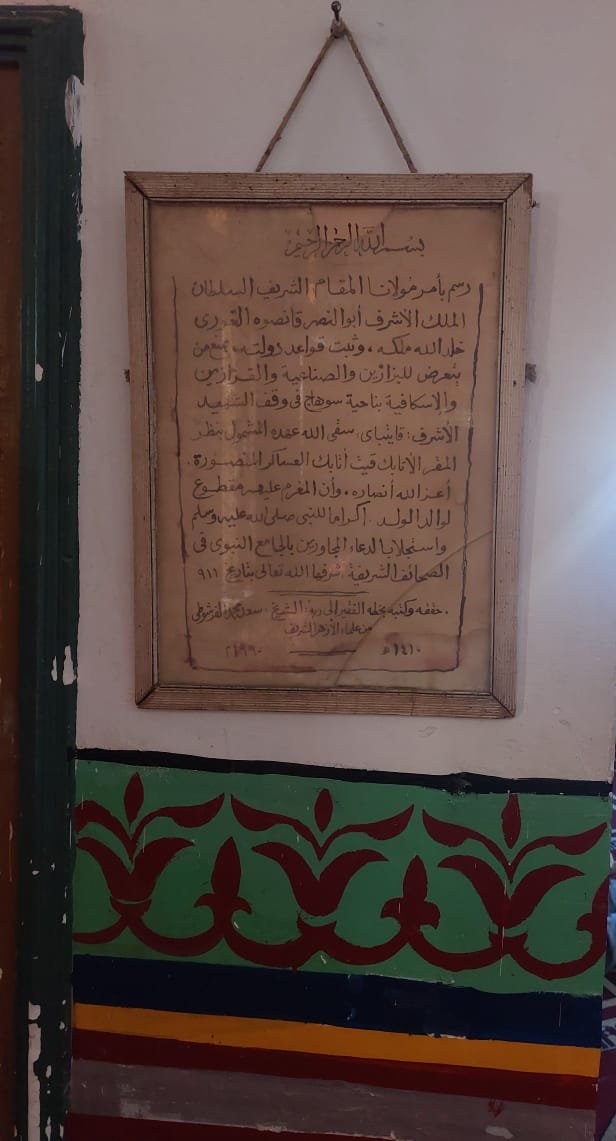 بسم الله الرحمن الرحيم
رسم بأمر مولانا المقام الشريف السلطان
الملك الأشرف أبو النصر قانصوه الغورى
خلد الله ملكه، وثبت قواعد دولته، بمنع من
يتعرض للبزازين والصناعية والقزازين
والإسكافية بناحية سوهاج فى وقف الشهيد
الأشرف: قايتباى، سقى الله عهده المشمول بنظر
المقر الأتابك قيت أتابك العساكر المنصورة.
أعز الله أنصاره، وأن المغرم عليهم مقطوع
لوالد الولد. إكراما للنبى صلى الله عليه وسلم
واستجلابا لدعاء المجاورين بالجامع النبوى فى
الصحائف الشريفة، شرفها الله تعالى بتاريخ ٩١١
حققه وكتبه بخطه الفقير إلى ربه: الشيخ، سعد محمد
من علماء الأزهر الشريف
١٤١٠ هـ ١٩٩٠ م